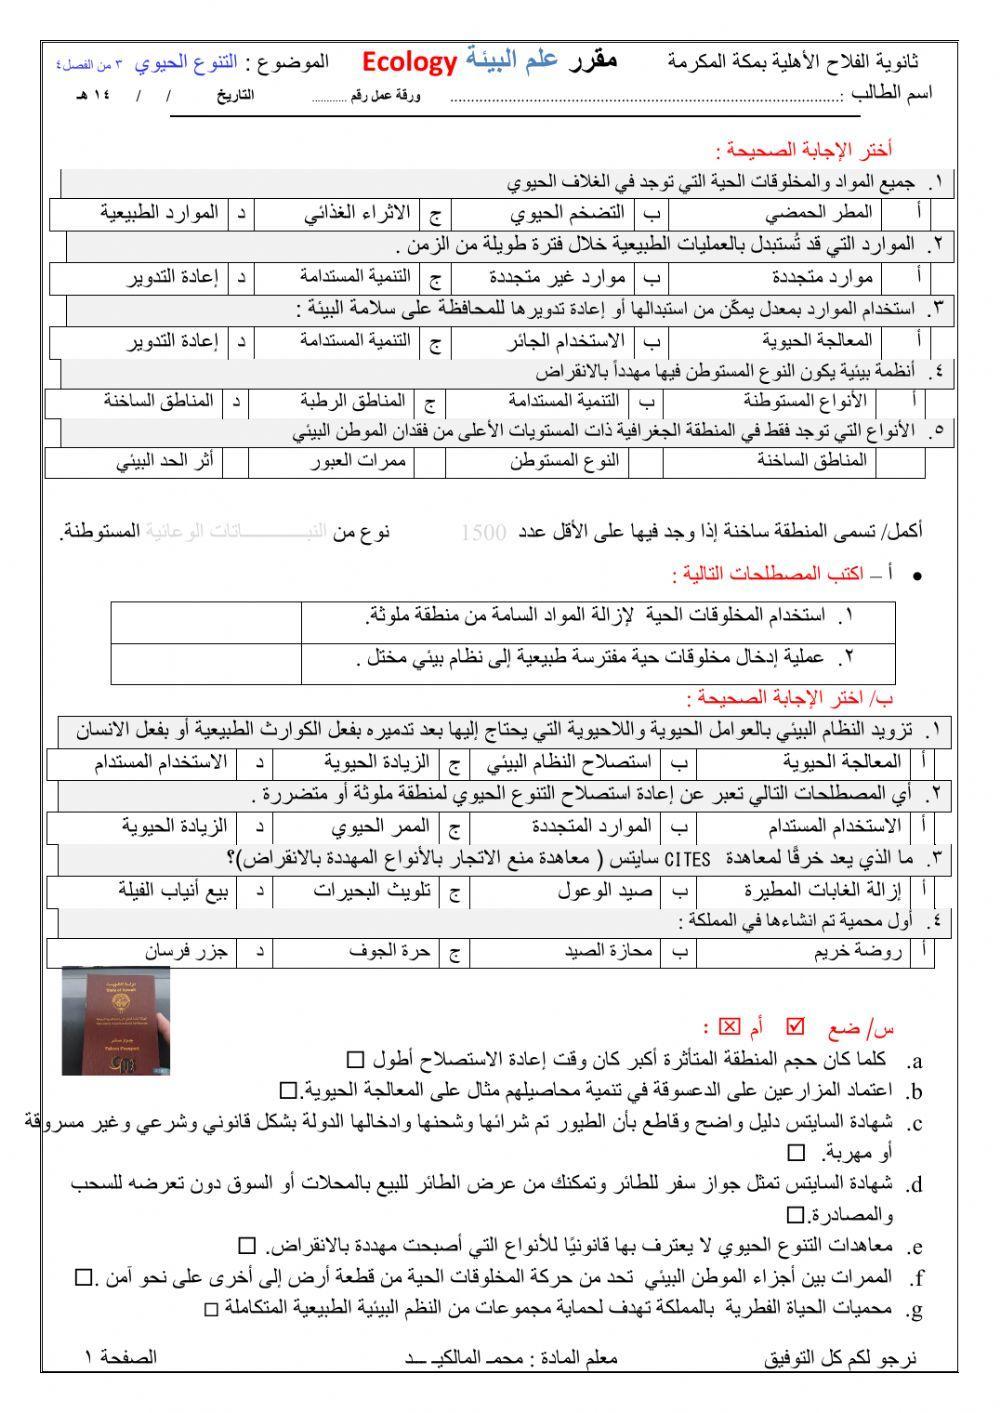 ثانوية الفلاح الأهلية بمكة المكرمة مقرر علم البيئة Ecology الموضوع : التنوع الحيوي ٣ من الفصل٤
اسم الطالب :........................................................................... ورقة عمل رقم ............ التاريخ / / ١٤ هـ
أختر الإجابة الصحيحة :
١. جميع المواد والمخلوقات الحية التي توجد في الغلاف الحيوي
أ المطر الحمضي ب التضخم الحيوي ج الاثراء الغذائي د الموارد الطبيعية
٢. الموارد التي قد تُستبدل بالعمليات الطبيعية خلال فترة طويلة من الزمن .
أ موارد متجددة ب موارد غير متجددة ج التنمية المستدامة د إعادة التدوير
٣. استخدام الموارد بمعدل يمكّن من استبدالها أو إعادة تدويرها للمحافظة على سلامة البيئة :
أ المعالجة الحيوية ب الاستخدام الجائر ج التنمية المستدامة د إعادة التدوير
٤. أنظمة بيئية يكون النوع المستوطن فيها مهدداً بالانقراض
أ الأنواع المستوطنة ب التنمية المستدامة ج المناطق الرطبة د المناطق الساخنة
٥. الأنواع التي توجد فقط في المنطقة الجغرافية ذات المستويات الأعلى من فقدان الموطن البيئي
المناطق الساخنة النوع المستوطن ممرات العبور أثر الحد البيئي
أكمل/ تسمى المنطقة ساخنة إذا وجد فيها على الأقل عدد 1500 نوع من النبــــــــاتات الوعائية المستوطنة.
• أ – اكتب المصطلحات التالية :
١. استخدام المخلوقات الحية لإزالة المواد السامة من منطقة ملوثة.
٢. عملية إدخال مخلوقات حية مفترسة طبيعية إلى نظام بيئي مختل .
ب/ اختر الإجابة الصحيحة :
١. تزويد النظام البيئي بالعوامل الحيوية واللاحيوية التي يحتاج إليها بعد تدميره بفعل الكوارث الطبيعية أو بفعل الانسان
أ المعالجة الحيوية ب استصلاح النظام البيئي ج الزيادة الحيوية د الاستخدام المستدام
٢. أي المصطلحات التالي تعبر عن إعادة استصلاح التنوع الحيوي لمنطقة ملوثة أو متضررة .
أ الاستخدام المستدام ب الموارد المتجددة ج الممر الحيوي د الزيادة الحيوية
٣. ما الذي يعد خرقًا لمعاهدة CITES سايتس ( معاهدة منع الاتجار بالأنواع المهددة بالانقراض)؟
أ إزالة الغابات المطيرة ب صيد الوعول ج تلويث البحيرات د بيع أنياب الفيلة
٤. أول محمية تم انشاءها في المملكة :
أ روضة خريم ب محازة الصيد ج حرة الجوف د جزر فرسان
س/ ضع ☑ أم ☒ :
a. كلما كان حجم المنطقة المتأثرة أكبر كان وقت إعادة الاستصلاح أطول ☐
b. اعتماد المزارعين على الدعسوقة في تنمية محاصيلهم مثال على المعالجة الحيوية.☐
c. شهادة السايتس دليل واضح وقاطع بأن الطيور تم شرائها وشحنها وادخالها الدولة بشكل قانوني وشرعي وغير مسروقة
أو مهربة. ☐
d. شهادة السايتس تمثل جواز سفر للطائر وتمكنك من عرض الطائر للبيع بالمحلات أو السوق دون تعرضه للسحب
والمصادرة.☐
e. معاهدات التنوع الحيوي لا يعترف بها قانونيًا للأنواع التي أصبحت مهددة بالانقراض. ☐
f. الممرات بين أجزاء الموطن البيئي تحد من حركة المخلوقات الحية من قطعة أرض إلى أخرى على نحو آمن .☐
g. محميات الحياة الفطرية بالمملكة تهدف لحماية مجموعات من النظم البيئية الطبيعية المتكاملة ☐
نرجو لكم كل التوفيق معلم المادة : محمـ المالكيـ ــد الصفحة ١